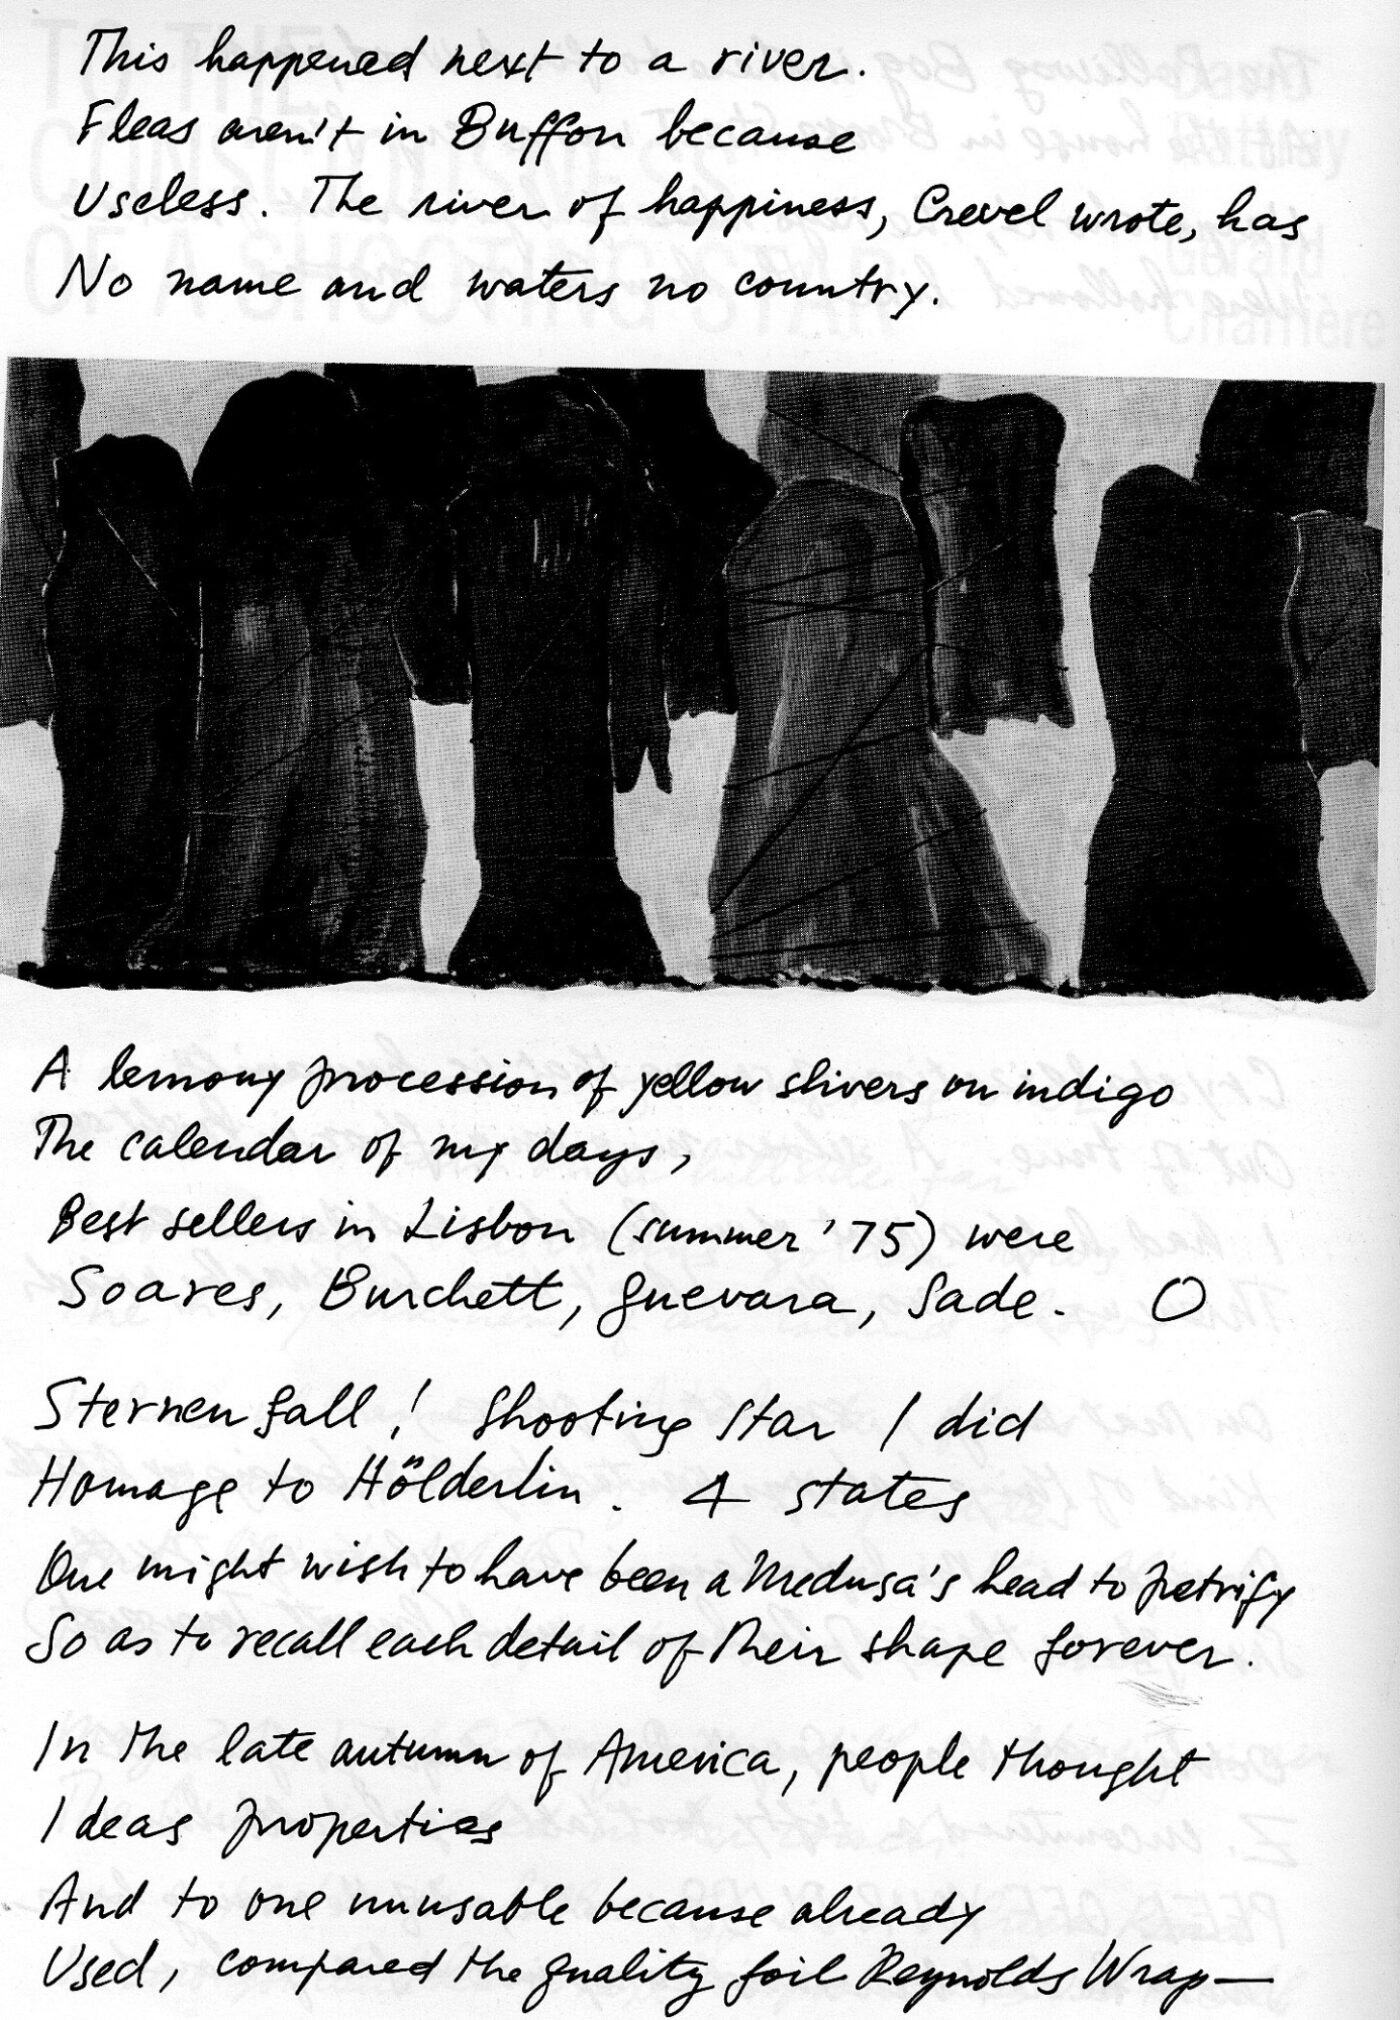 This happened next to a river.
Fleas aren't in Buffon because
Useless. The river of happiness, Crevel wrote, has
No name and waters no country.
A lemony procession of yellow slivers on indigo
The calendar of my days,
Best sellers in Lisbon (summer '75) were
Soares, Burchett, Guevara, Sade. O
Sternenfall! Shooting star I did
Homage to Hölderlin. 4 states
One might wish to have been a Medusa's head to petrify
So as to recall each detail of their shape forever.
In the late autumn of America, people thought
Ideas properties
And to one unusable because already
Used, compared the quality foil Reynolds Wrap—